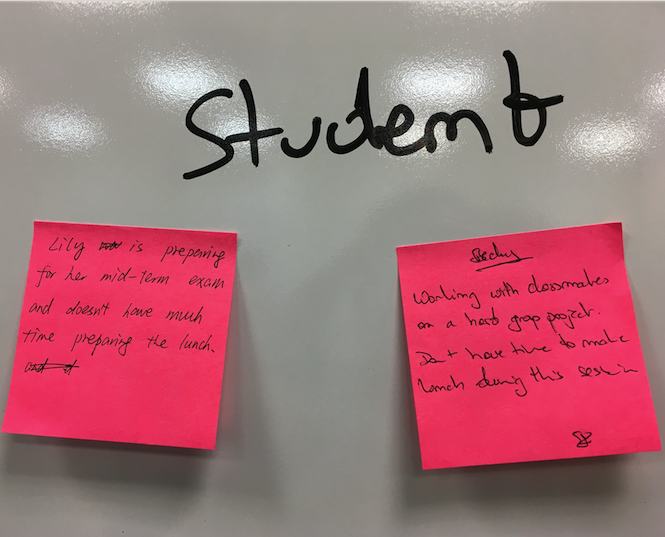 Student
Lily is preperring
for her mid-term exam
and doesn't have much
time preparing the lunch.
Working with classmates
on a hard group project.
Don't have time to make
lunch during this session